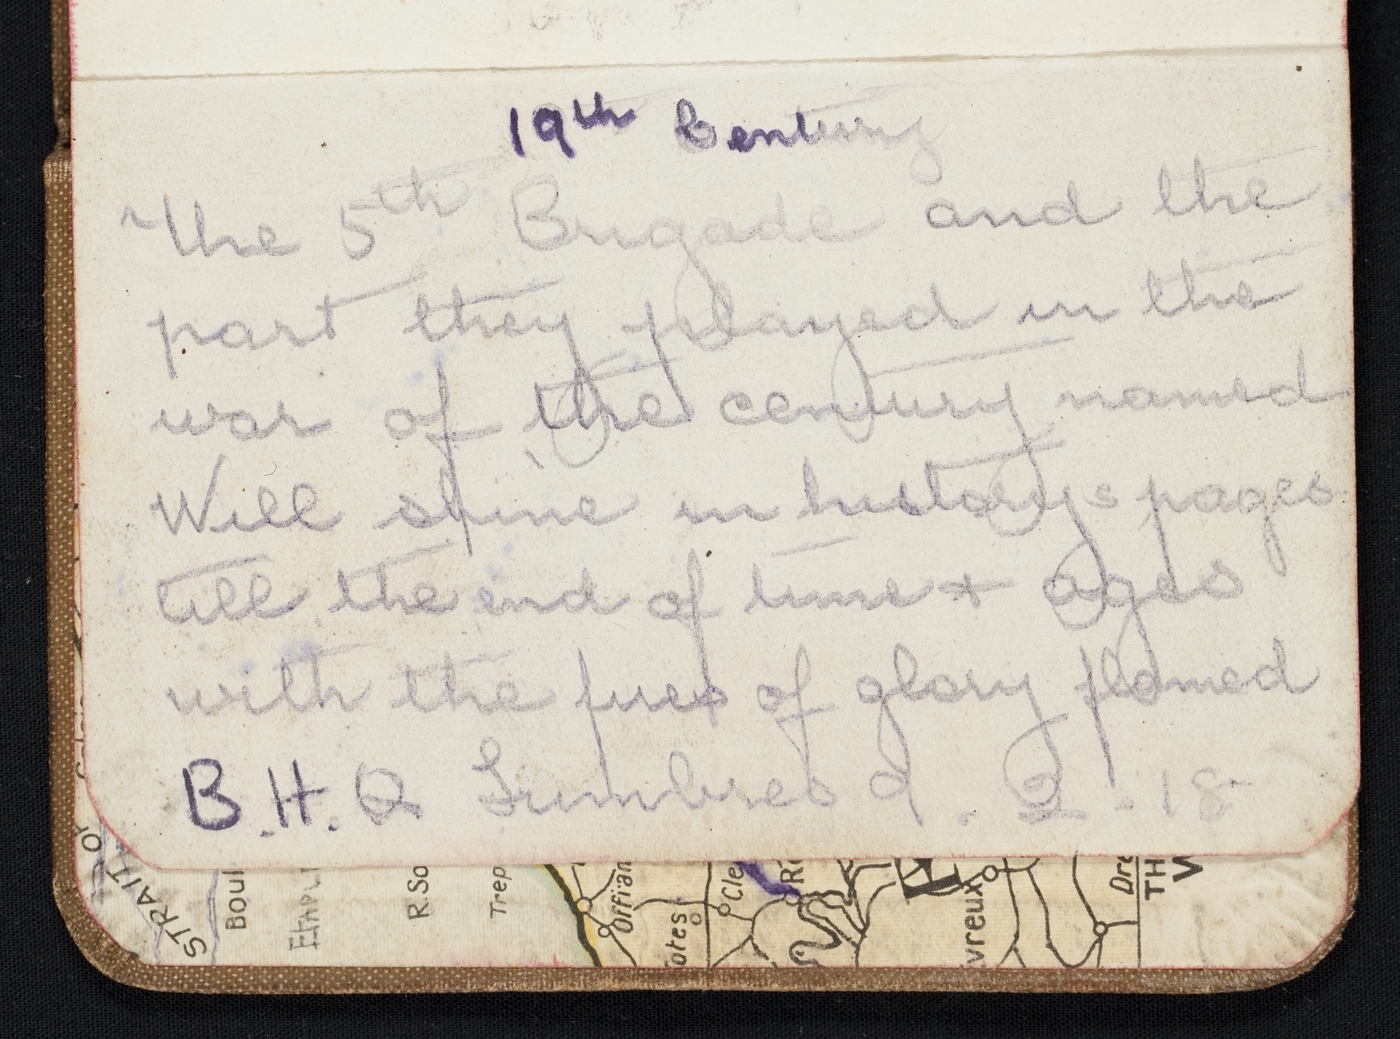 19th Century
The 5th Brigade and the
part they played in the
war of the century named
Will shine in historys pages
till the end of time + ages
with the fires of glory flamed
B.H.Q Lumbres 9.2.18
STRAIT OF
Boul
R.So
Trep
Offran
Cle
Ri
vreux
Dre
TH